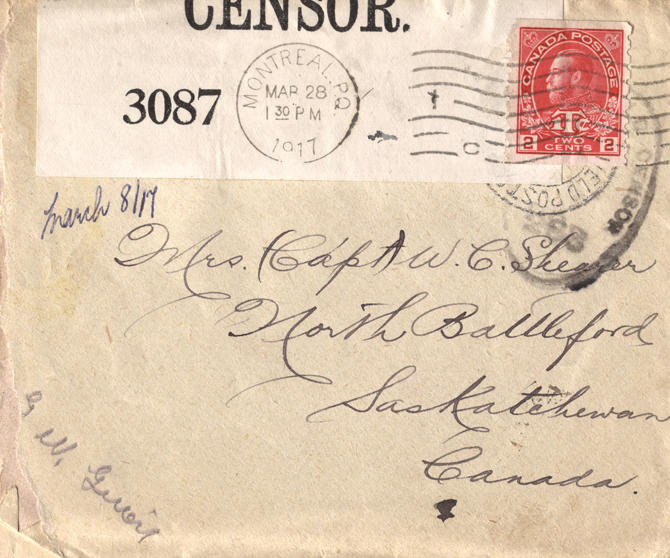 CENSOR.
3087
MONTREAL, P.Q.
MAR 28
1 30 PM
1917
CANADA POSTAGE
1T
2 TWO CENTS 2
FIELD POST
CENSOR
March 8/17
Mrs. (Capt) W. C. Shearer
North Battleford
Saskatchewan
Canada.
W.